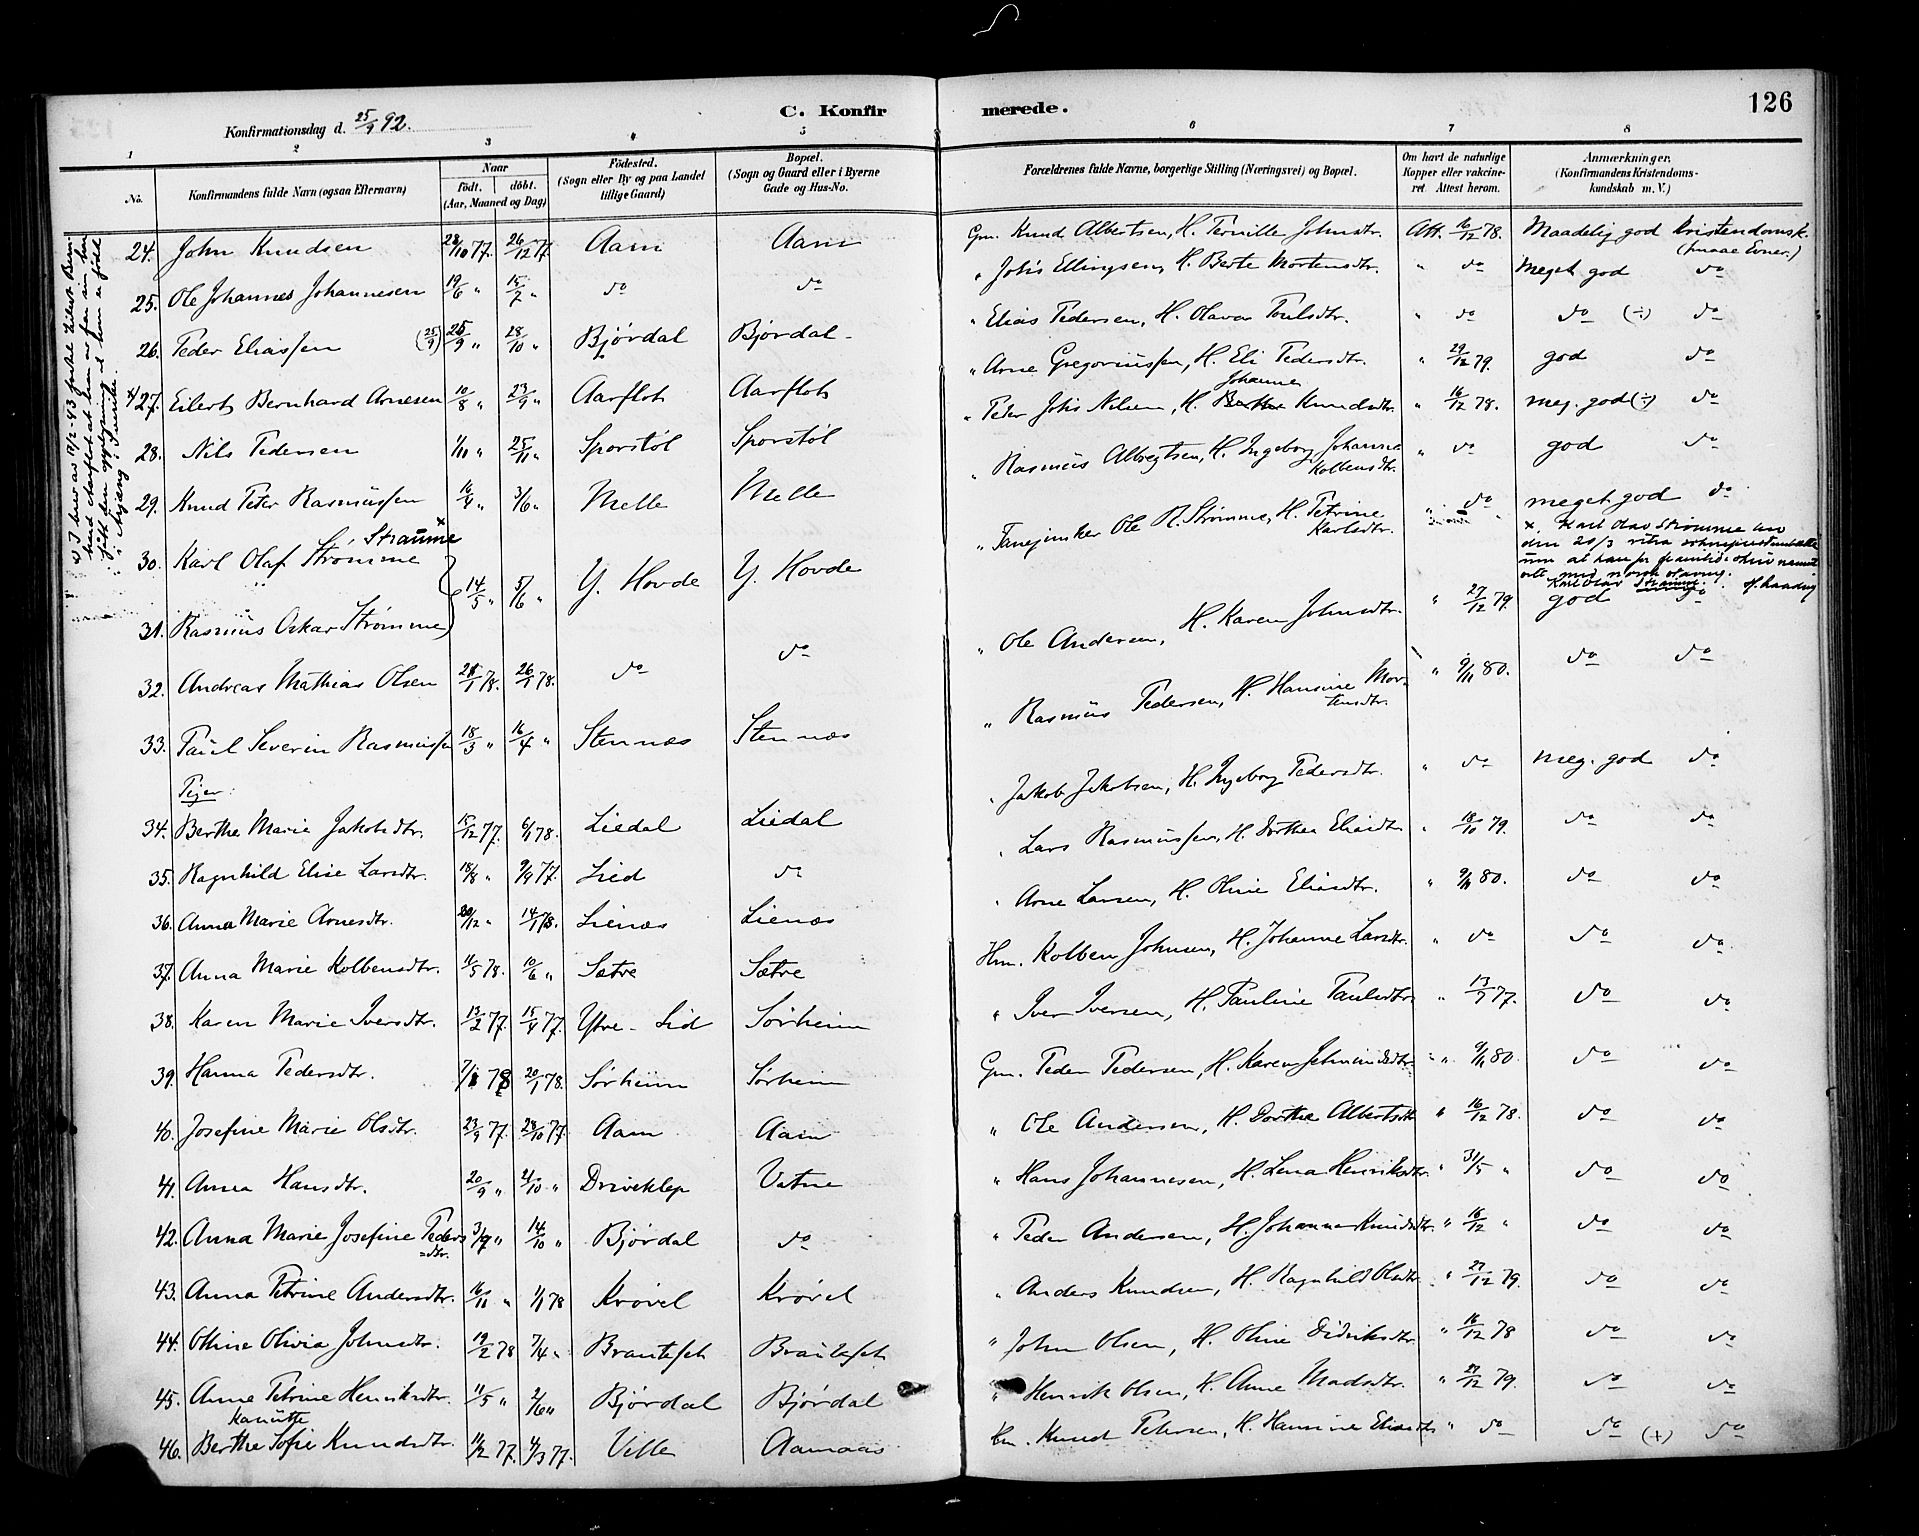 126
C. Konfirmerede.
Konfirmationsdag d. 25/9 92.
1 2 3 4 5 6 7 8
No.
Konfirmandens fulde Navn (ogsaa Efternavn)
Naar
født. døbt.
(Aar, Maaned og Dag)
Fødested.
(Sogn eller By og paa Landet
tillige Gaard)
Bopæl.
(Sogn og Gaard eller i Byerne
Gade og Hus-No.
Forældrenes fulde Navne, borgerlige Stilling (Næringsvei) og Bopæl.
Om havt de naturlige
Kopper eller vakcine-
ret. Attest herom.
Anmærkninger.
(Konfirmandens Kristendoms-
kundskab m. V.)
24. John Knudsen 28/10 77. 26/12 77. Aam Aam Gm. Knud Albertsen, H. Pernille Johnsdtr. Att. 16/12 78. Maadelig god Kristendomsk.
(smaae Evner.)
25. Ole Johannes Johannesen 19/6 " 15/7 " do do " Johs Ellingsen, H. Berte Mortensdtr. " do Meget god do
26. Peder Eliassen (25/9) 25/9 " 28/10 " Bjørdal Bjørdal " Elias Pedersen, H. Olava Poulsdtr. " do do (÷) do
27. Eilert Bernhard Arnesen 10/8 " 23/9 " Aarflot Aarflot " Arne Gregoriussen, H. Eli Pedersdtr. " 29/12 79. god do
28. Nils Pedersen 1/10 " 25/11 " Sporstøl Sporstøl " Peter Johs Nilsen, H. Johanne Knudsdtr. " 16/12 78. meg. god (÷) do
29. Knud Peter Rasmussen 16/4 " 3/6 " Melle Melle " Rasmus Albregtsen, H. Ingeborg Johanne Kolbensdtr. " do god do
30. Karl Olaf Strømme Straume x 14/5 " 5/6 " Y. Hovde Y. Hovde " Fanejunker Ole R. Strømme, H. Petrine Karlsdtr. " do meget god do
x Karl Olav Strømme
den 20/3
Karl Olav Straume.
31. Rasmus Oskar Strømme
32. Andreas Mathias Olsen 21/1 78. 26/1 78. do do " Ole Andersen, H. Karen Johnsdtr. " 27/12 79. god do
33. Paul Severin Rasmussen 18/3 " 16/4 " Stennæs Stennæs " Rasmus Pedersen, H. Hansine Mortensdtr. " 9/11 80. do do
Piger:
34. Berthe Marie Jakobsdtr. 15/12 77. 6/1 78. Liedal Liedal " Jakob Jakobsen, H. Ingeborg Pedersdtr. " do meg. god do
35. Ragnhild Elise Larsdtr. 18/8 " 9/9 77. Lied do " Lars Rasmussen, H. Dorthea Eliasdtr. " 18/10 79. do do
36. Anna Marie Arnesdtr. 20/12 " 14/1 78. Lienæs Lienæs " Arne Larsen, H. Oline Eliasdtr. " 9/11 80. do do
37. Anna Marie Kolbensdtr. 11/5 78. 10/6 " Sætre Sætre Hm. Kolben Johnsen, H. Johanne Larsdtr. " do do do
38. Karen Marie Iversdtr. 13/2 77. 15/4 77. Ytre-Lid Sørheim " Iver Iversen, H. Pauline Paulsdtr. " 13/7 77. do do
39. Hanna Pedersdtr. 7/1 78 20/1 78. Sørheim Sørheim Gm. Peder Pedersen, H. Karen Jetmundsdtr. " 9/11 80. do do
40. Josefine Marie Olsdtr. 23/9 77. 28/10 77. Aam Aam " Ole Andersen, H. Dorthe Albertsdtr. " 16/12 78. do do
41. Anna Hansdtr. 20/9 " 21/10 " Driveklep Vatne " Hans Johannesen, H. Lena Henriksdtr. " 31/5 " do do
42. Anna Marie Josefine Pedersdtr. 3/9 " 14/10 " Bjørdal do " Peder Andersen, H. Johanne Knudsdtr. " 16/12 " do do
43. Anna Petrine Andersdtr. 16/11 " 1/1 78 Krøvel Krøvel " Anders Knudsen, H. Ragnhild Olsdtr. " 27/12 79. do do
44. Oline Olivia Johnsdtr. 19/2 78 7/4 " Brauteset Brauteset " John Olsen, H. Oline Didriksdtr. " 16/12 78 do do
45. Anne Petrine Henriksdtr. 11/5 " 2/6 " Bjørdal Bjørdal " Henrik Olsen, H. Anne Madsdtr. " 27/12 79. do do
46. Berthe Sofie Kanutte Knudsdtr. 11/2 77. 4/3 77. Velle Aamaas Hm. Knud Petersen, H. Hansine Eliasdtr. " do do (+) do